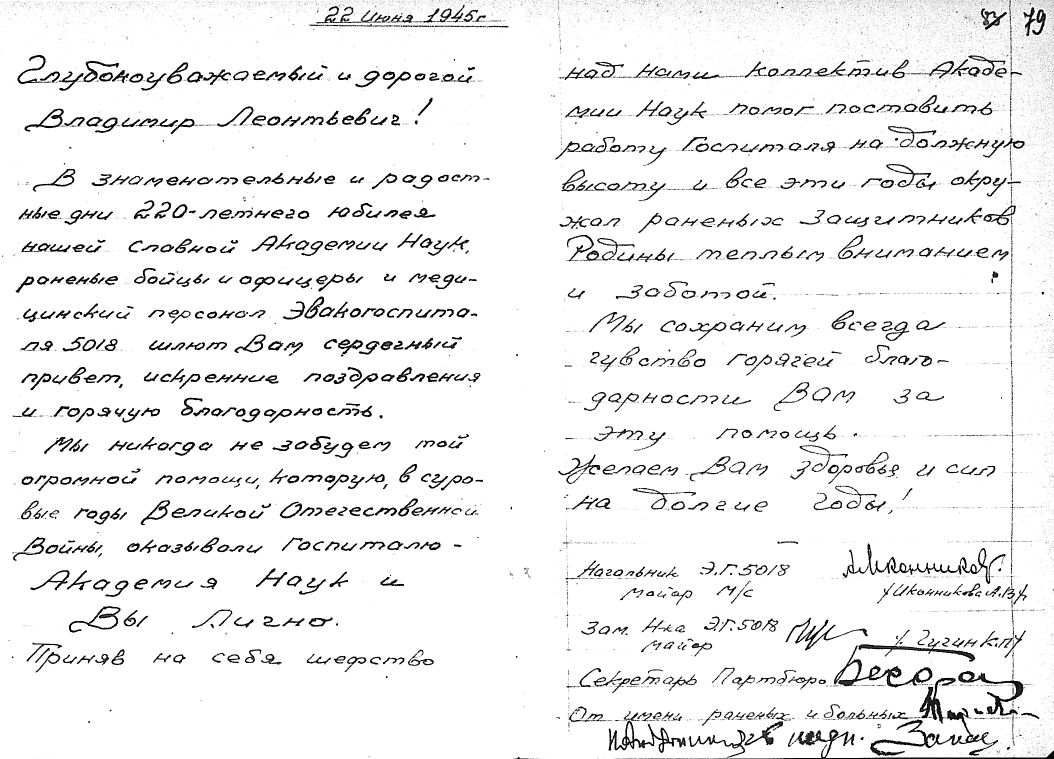 22 Июня 1945г
Глубокоуважаемый и дорогой
Владимир Леонтьевич!
В знаменательные и радост-
ные дни 220-летнего юбилея
нашей славной Академии Наук,
раненые бойцы и офицеры и меди-
цинский персонал Эвакогоспита-
ля 5018 шлют Вам сердечный
привет, искренние поздравления
и горячую благодарность.
Мы никогда не забудем той
огромной помощи, которую, в суро-
вые годы Великой Отечественной
Войны, оказывали Госпиталю -
Академия Наук и
Вы Лично.
Приняв на себя шефство
79
над нами коллектив Акаде-
мии Наук помог поставить
работу Госпиталя на должную
высоту и все эти годы окру-
жал раненых Защитников
Родины теплым вниманием
и заботой.
Мы сохраним всегда
чувство горячей благо-
дарности Вам за
эту помощь.
Желаем Вам здоровья и сил
на долгие годы!
Начальник Э.Г.5018 А.Иконников
майор м/с /Иконникова А.В/
Зам. Н-ка Э.Г.5018
майор /Чугин К.П/
Секретарь Партбюро
От имени раненых и больных